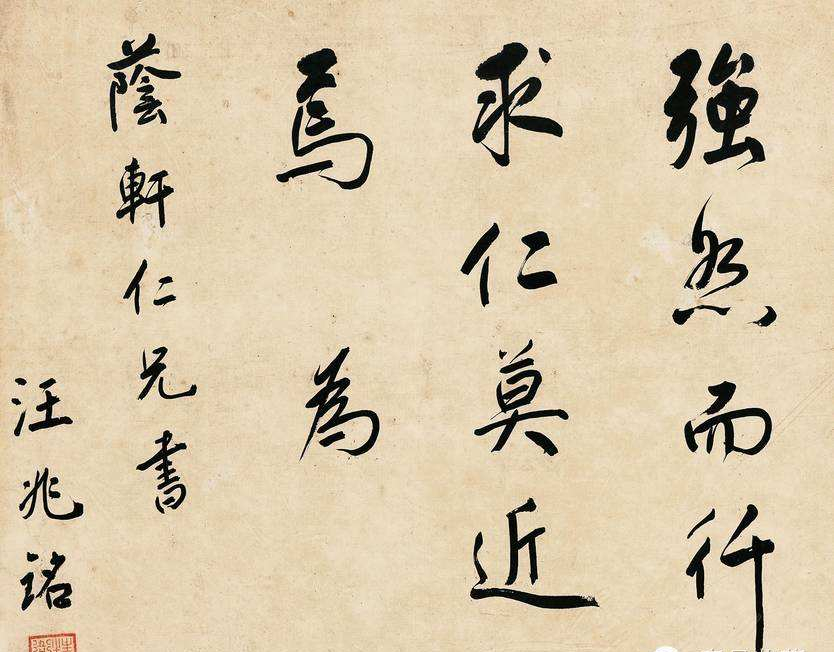 強恕而行
求仁莫近
焉為
蔭軒仁兄書
汪兆銘